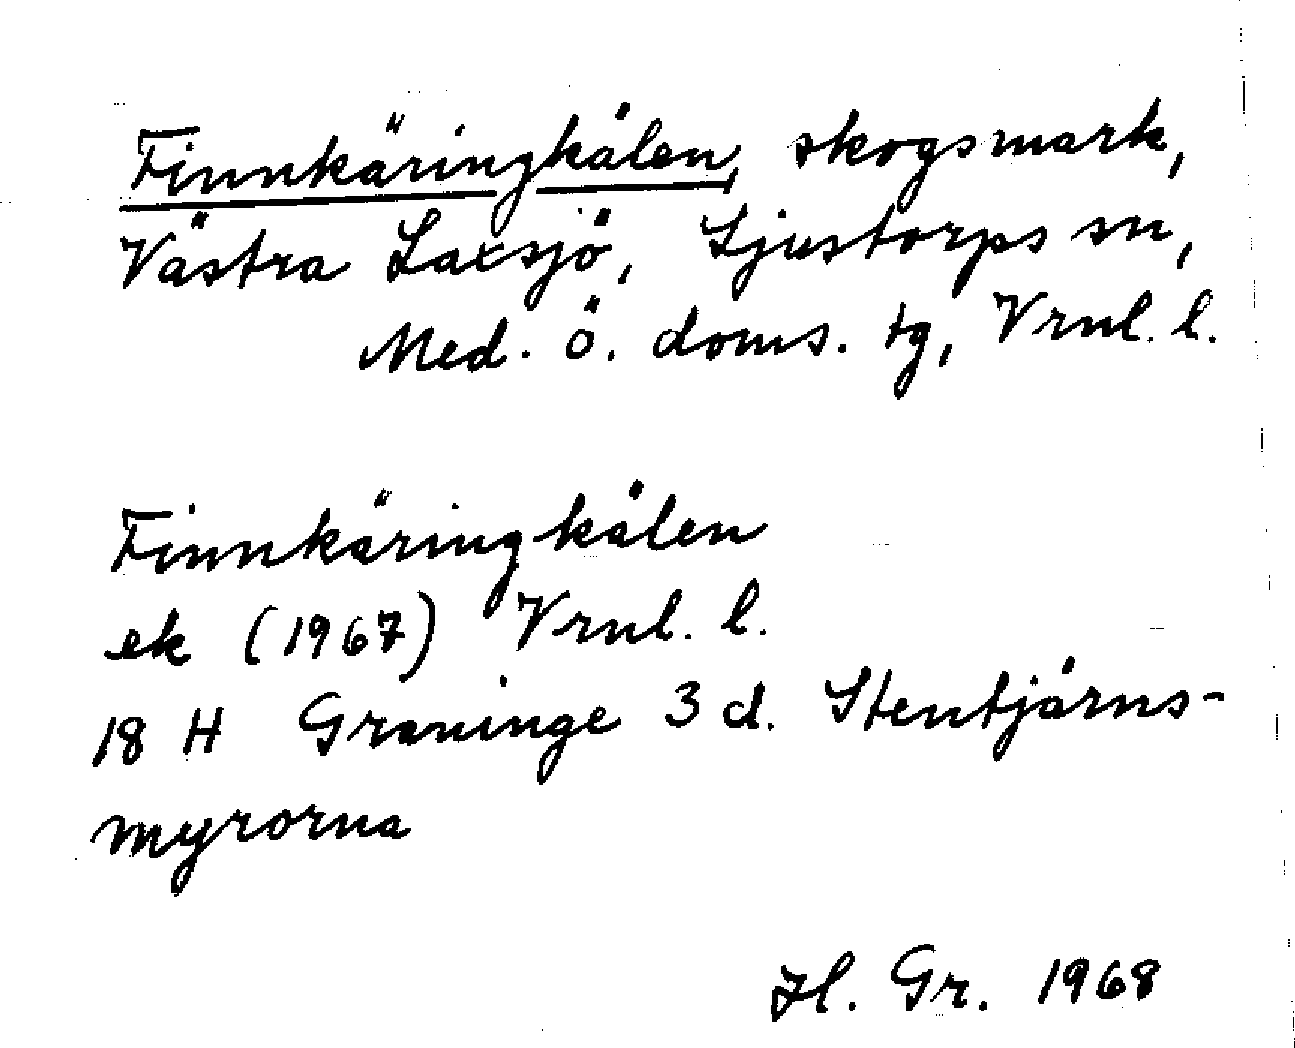 Finnkäringkålen, skogsmark,
Västra Laxsjö, Ljustorps sn,
Med. Ö. doms. tg, Vrnl. l.
Finnkäringkålen
ek (1967) Vrnl. l.
18 H Graninge 3 d. Stentjärns-
myrorna
Gr. 1968